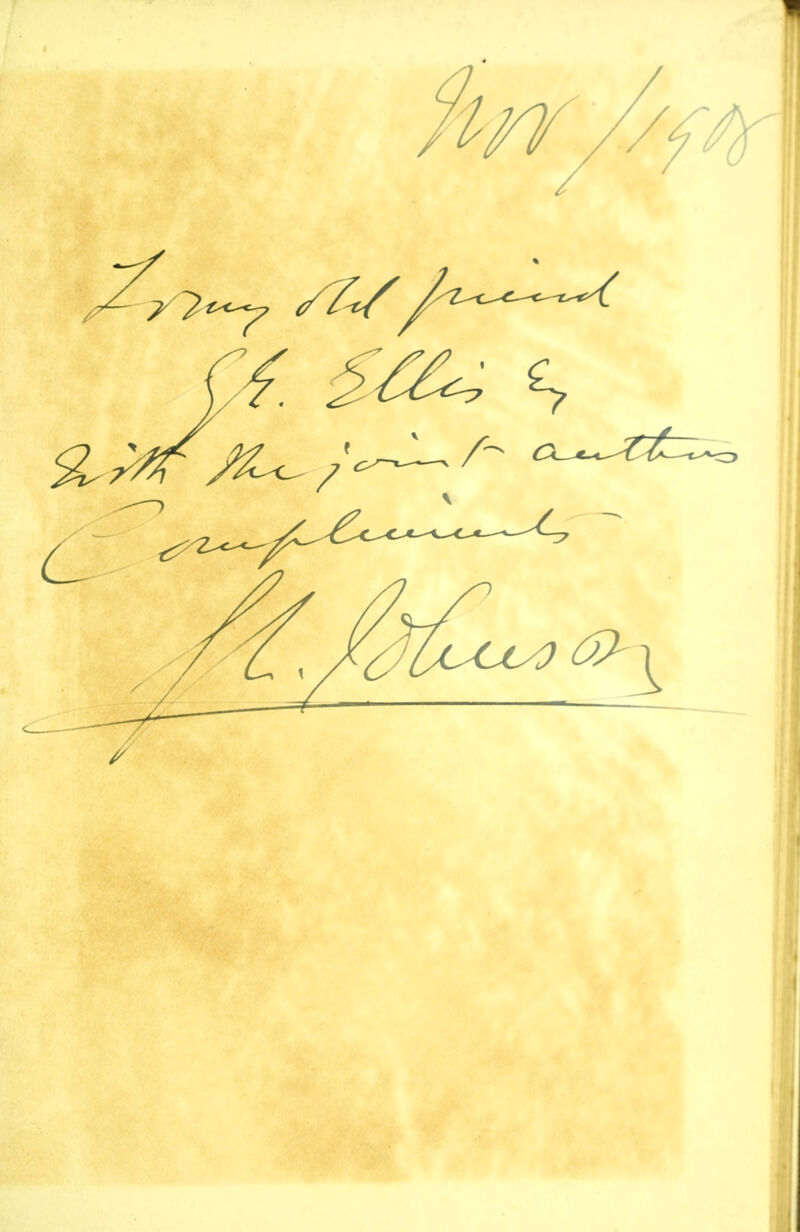 Nov / 1908
To my old friend
G E. Ellis Esq
With the joint authors
Compliments
Johnson